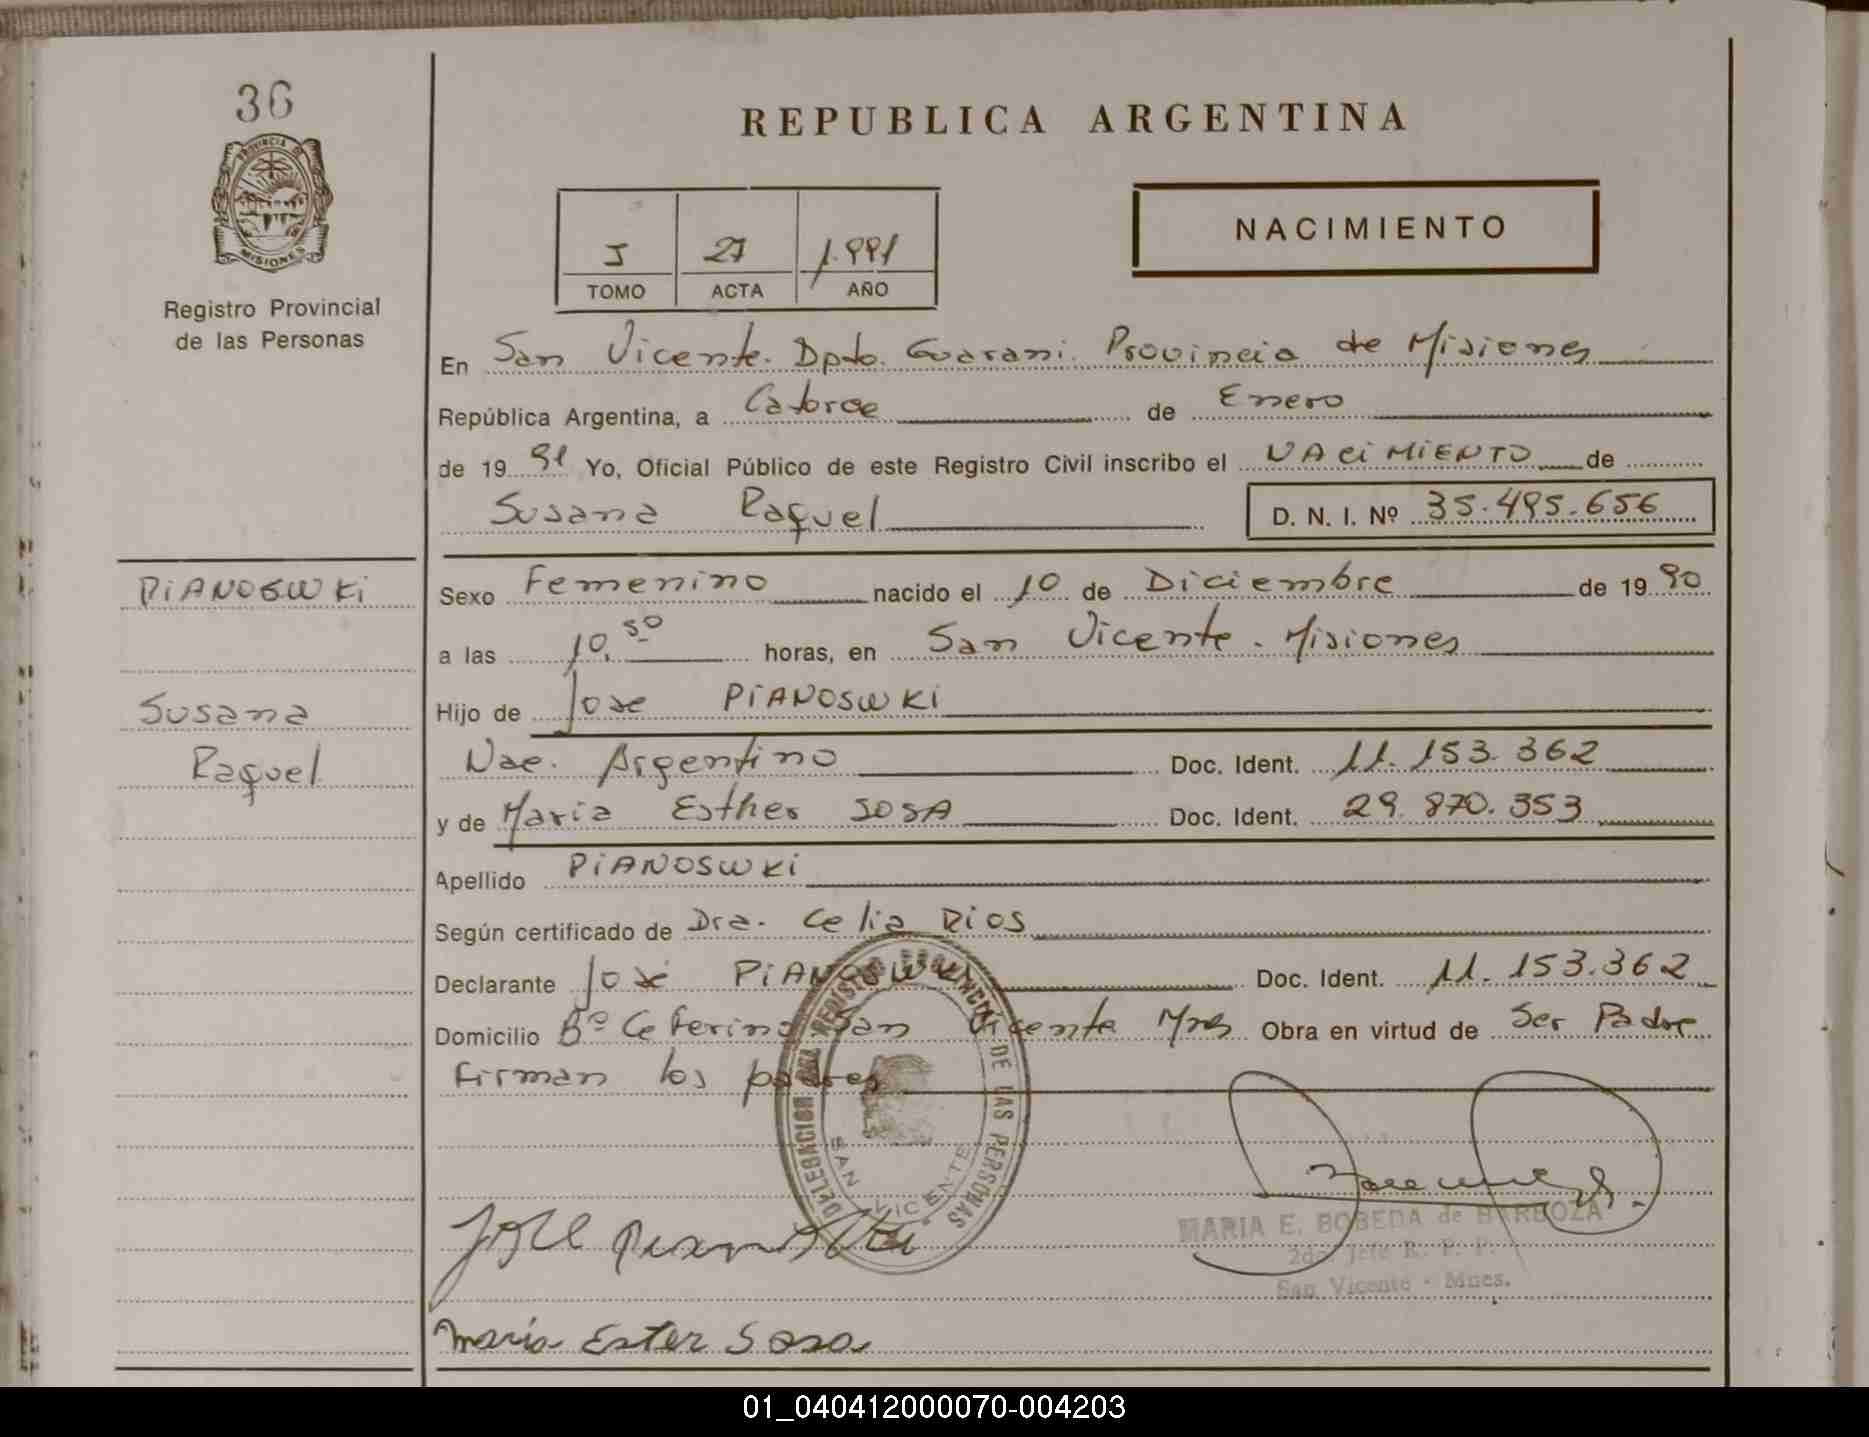 36
PROVINCIA DE
MISIONES
Registro Provincial
de las Personas
REPUBLICA ARGENTINA
NACIMIENTO
I 27 1.991
TOMO ACTA AÑO
En San Vicente. Dpto. Guarani. Provincia de Misiones
República Argentina, a Catorce de Enero
de 19 91 Yo, Oficial Público de este Registro Civil inscribo el NACiMiENTO de
Susana Raquel D. N. I. Nº 35.495.656
PiANOSWKi
Susana
Raquel
Sexo Femenino nacido el 10 de Diciembre de 19 90
a las 10,50 horas, en San Vicente - Misiones
Hijo de Jose PiANOSWKi
Nac. Argentino Doc. Ident. 11.153.362
y de Maria Esther SOSA Doc. Ident. 29.870.353
Apellido PiANOSWKi
Según certificado de Dra. Celia Rios
Declarante José PiANOSWKi Doc. Ident. 11.153.362
Domicilio Bº Ceferino San Vicente Mnes Obra en virtud de Ser Padre
Firman los padres
DELEGACION REGISTRO PROVINCIAL DE LAS PERSONAS
SAN VICENTE
MARIA E. BOBEDA de BARBOZA
2do. Jefe R. P. P.
San Vicente - Mnes.
José
María Ester Sosa
01_040412000070-004203